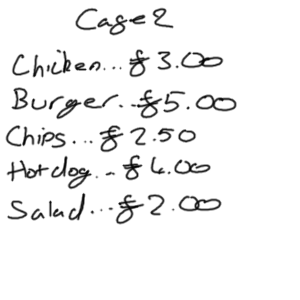 Case 2
Chicken...£3.00
Burger..£5.00
Chips...£2.50
Hotdog..£4.00
Salad...£2.00